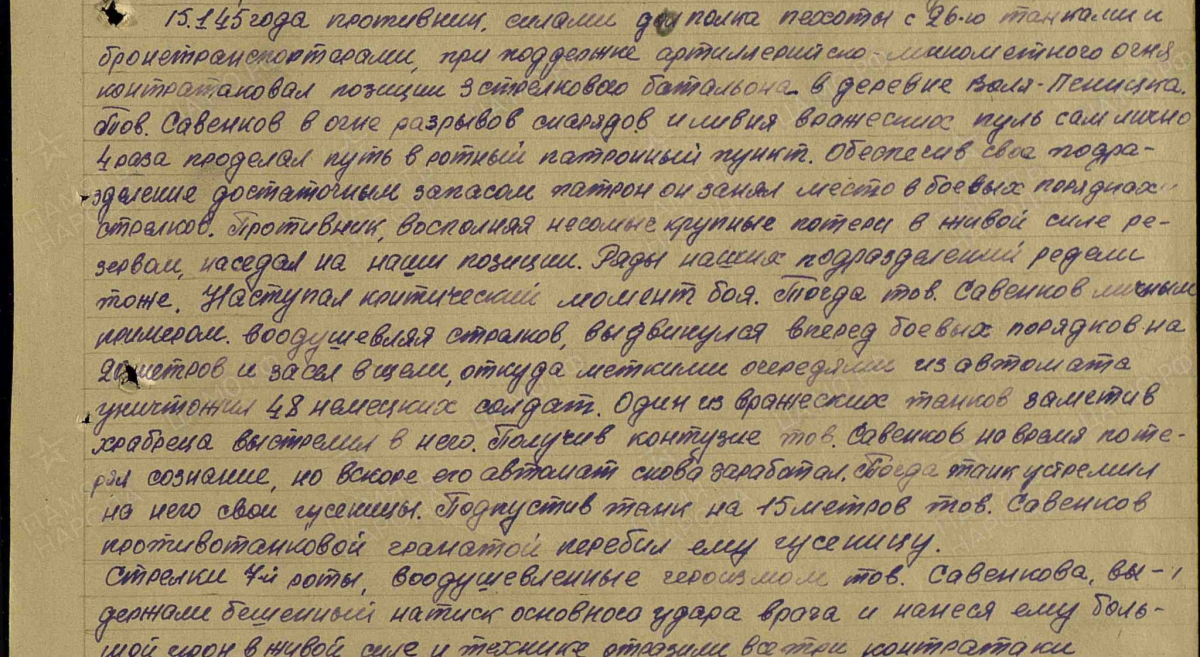 15.1.45 года противник, силами до полка пехоты с 26-ю танками и
бронетранспортерами, при поддержке артиллерийско-минометного огня
контратаковал позиции 3 стрелкового батальона в деревне Воля-Пеницка.
Тов. Савенков в огне разрывов снарядов и ливня вражеских пуль самлично
4 раза проделал путь в ротный патронный пункт. Обеспечив свое подра-
зделение достаточным запасом патрон он занял место в боевых порядках
стрелков. Противник, восполняя несомые крупные потери в живой силе ре-
зервом, наседал на наши позиции. Ряды наших подразделений редели
тоже. Наступал критический момент боя. Тогда тов. Савенков личным
примером воодушевляя стрелков, выдвинулся вперед боевых порядков на
метров и засел в щели, откуда меткими очередями из автомата
уничтожил 48 немецких солдат. Один из вражеских танков заметив
храбреца выстрелил в него. Получив контузие тов. Савенков на время поте-
рял сознание, но вскоре его автомат снова заработал. Тогда танк устремил
на него свои гусеницы. Подпустив танк на 15 метров тов. Савенков
противотанковой гранатой перебил ему гусеницу.
Стрелки 7-й роты, воодушевленные героизмом тов. Савенкова, вы-
держали бешенный натиск основного удара врага и нанеся ему боль-
шой урон в живой силе и технике отразили все три контратаки